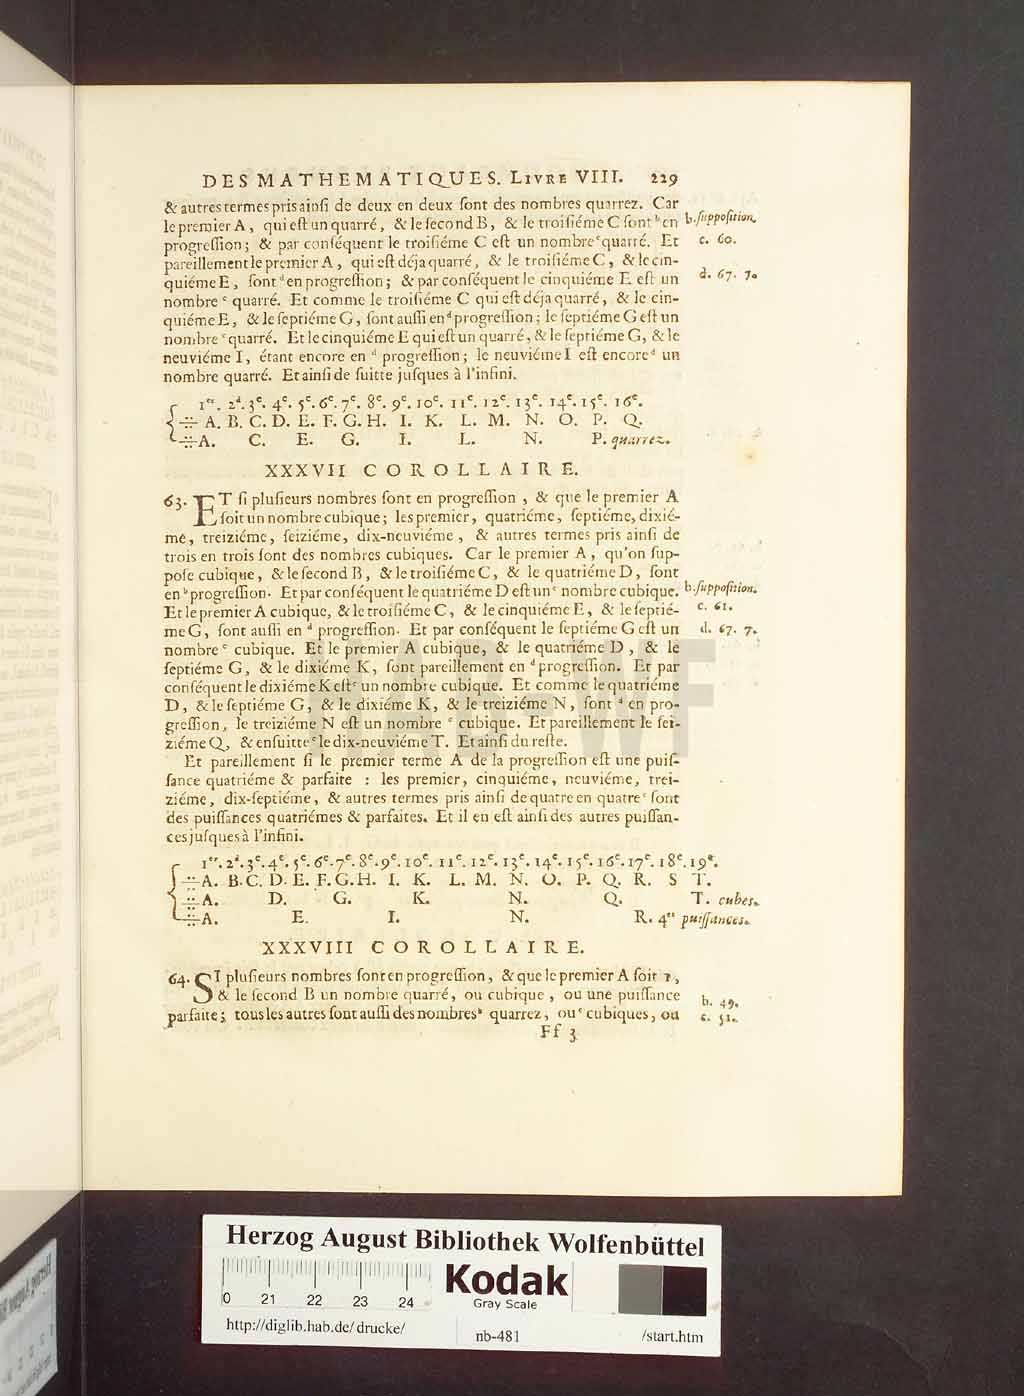 DES MATHEMATIQUES. LIVRE VIII. 229
& autres termes pris ainſi de deux en deux ſont des nombres quarrez. Car
le premier A, qui eſt un quarré, & le ſecond B, & le troiſiéme C ſont b en b. ſuppoſition.
progreſſion; & par conſéquent le troiſiéme C eſt un nombre c quarré. Et c. 60.
pareillement le premier A, qui eſt déja quarré, & le troiſiéme C, & le cin-
quiéme E, ſont d en progreſſion; & par conſéquent le cinquiéme E eſt un d. 67. 7.
nombre c quarré. Et comme le troiſiéme C qui eſt déja quarré, & le cin-
quiéme E, & le ſeptiéme G, ſont auſſi en d progreſſion; le ſeptiéme G eſt un
nombre c quarré. Et le cinquiéme E qui eſt un quarré, & le ſeptiéme G, & le
neuviéme I, étant encore en d progreſſion; le neuviéme I eſt encore d un
nombre quarré. Et ainſi de ſuitte juſques à l'infini.
1er. 2d. 3e. 4e. 5e. 6e. 7e. 8e. 9e. 10e. 11e. 12e. 13e. 14e. 15e. 16e.
÷ A. B. C. D. E. F. G. H. I. K. L. M. N. O. P. Q.
÷ A. C. E. G. I. L. N. P. quarrez.
XXXVII COROLLAIRE.
63. ET ſi pluſieurs nombres ſont en progreſſion, & que le premier A
ſoit un nombre cubique; les premier, quatriéme, ſeptiéme, dixié-
me, treiziéme, ſeiziéme, dix-neuviéme, & autres termes pris ainſi de
trois en trois ſont des nombres cubiques. Car le premier A, qu'on ſup-
poſe cubique, & le ſecond B, & le troiſiéme C, & le quatriéme D, ſont
en b progreſſion. Et par conſéquent le quatriéme D eſt un c nombre cubique. b. ſuppoſition.
Et le premier A cubique, & le troiſiéme C, & le cinquiéme E, & le ſeptié- c. 61.
me G, ſont auſſi en d progreſſion. Et par conſéquent le ſeptiéme G eſt un d. 67. 7.
nombre c cubique. Et le premier A cubique, & le quatriéme D, & le
ſeptiéme G, & le dixiéme K, ſont pareillement en d progreſſion. Et par
conſéquent le dixiéme K eſt c un nombre cubique. Et comme le quatriéme
D, & le ſeptiéme G, & le dixiéme K, & le treiziéme N, ſont d en pro-
greſſion, le treiziéme N eſt un nombre c cubique. Et pareillement le ſei-
ziéme Q, & enſuitte c le dix-neuviéme T. Et ainſi du reſte.
Et pareillement ſi le premier terme A de la progreſſion eſt une puiſ-
ſance quatriéme & parfaite : les premier, cinquiéme, neuviéme, trei-
ziéme, dix-ſeptiéme, & autres termes pris ainſi de quatre en quatre c ſont
des puiſſances quatriémes & parfaites. Et il en eſt ainſi des autres puiſſan-
ces juſques à l'infini.
1er. 2d. 3e. 4e. 5e. 6e. 7e. 8e. 9e. 10e. 11e. 12e. 13e. 14e. 15e. 16e. 17e. 18e. 19e.
÷ A. B. C. D. E. F. G. H. I. K. L. M. N. O. P. Q. R. S T.
÷ A. D. G. K. N. Q. T. cubes.
÷ A. E. I. N. R. 4es puiſſances.
XXXVIII COROLLAIRE.
64. SI pluſieurs nombres ſont en progreſſion, & que le premier A ſoit 1,
& le ſecond B un nombre quarré, ou cubique, ou une puiſſance b. 49.
parfaite; tous les autres ſont auſſi des nombres b quarrez, ou c cubiques, ou c. 51.
Ff 3
HAB-WF
Herzog August Bibliothek Wolfenbüttel
0 21 22 23 24
Kodak
Gray Scale
http://diglib.hab.de/drucke/ nb-481 /start.htm